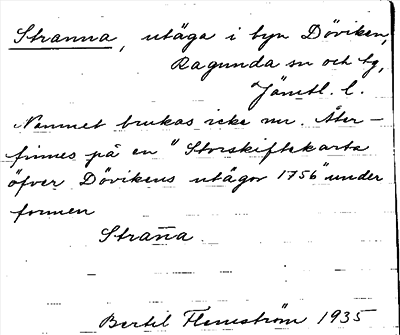 Stranna, utäga i byn Döviken,
Ragunda sn och tg,
Jämtl. l.
Namnet brukas icke nu. Åter-
finnes på en "Storskifteskarta
öfver Dövikens utägor 1756" under
formen
Stran̄a.
Bertil Flemström 1935